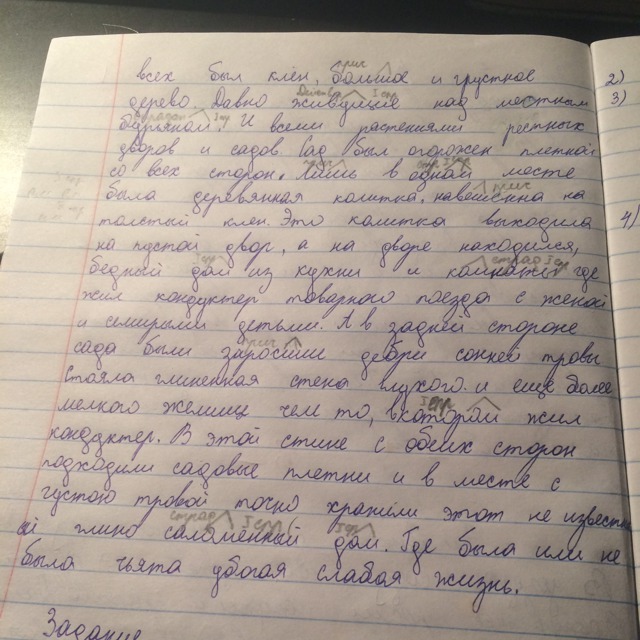 всех был клён, большое и грустное 2)
дерево Давно живущие над местным 3)
бурьяном. И всеми растениями рестных
дворов и садов Сад был огорожен плетной
со всех сторон. Лишь в одном месте
была деревянная калитка, навешена на
толстый клен. Это калитка выходила 4)
на пустой двор, а на дворе находился,
бедный дом из кухни и комнаты где
жил кондуктер товарного поезда с женой
и семирыми детьми. А в задней стороне
сада были заросшие дебри сонной травы
стояла глиненная стена глухого. и еще более
мелкого жилищ чем то, в которой жил
кондуктер. В этой стине с обеих сторон
подходили садовые плетни и в месте с
густою травой точно хранили этот не известн
ый глино саламенный дом. Где была или не
была чьята убогая слабая жизнь.
Задание